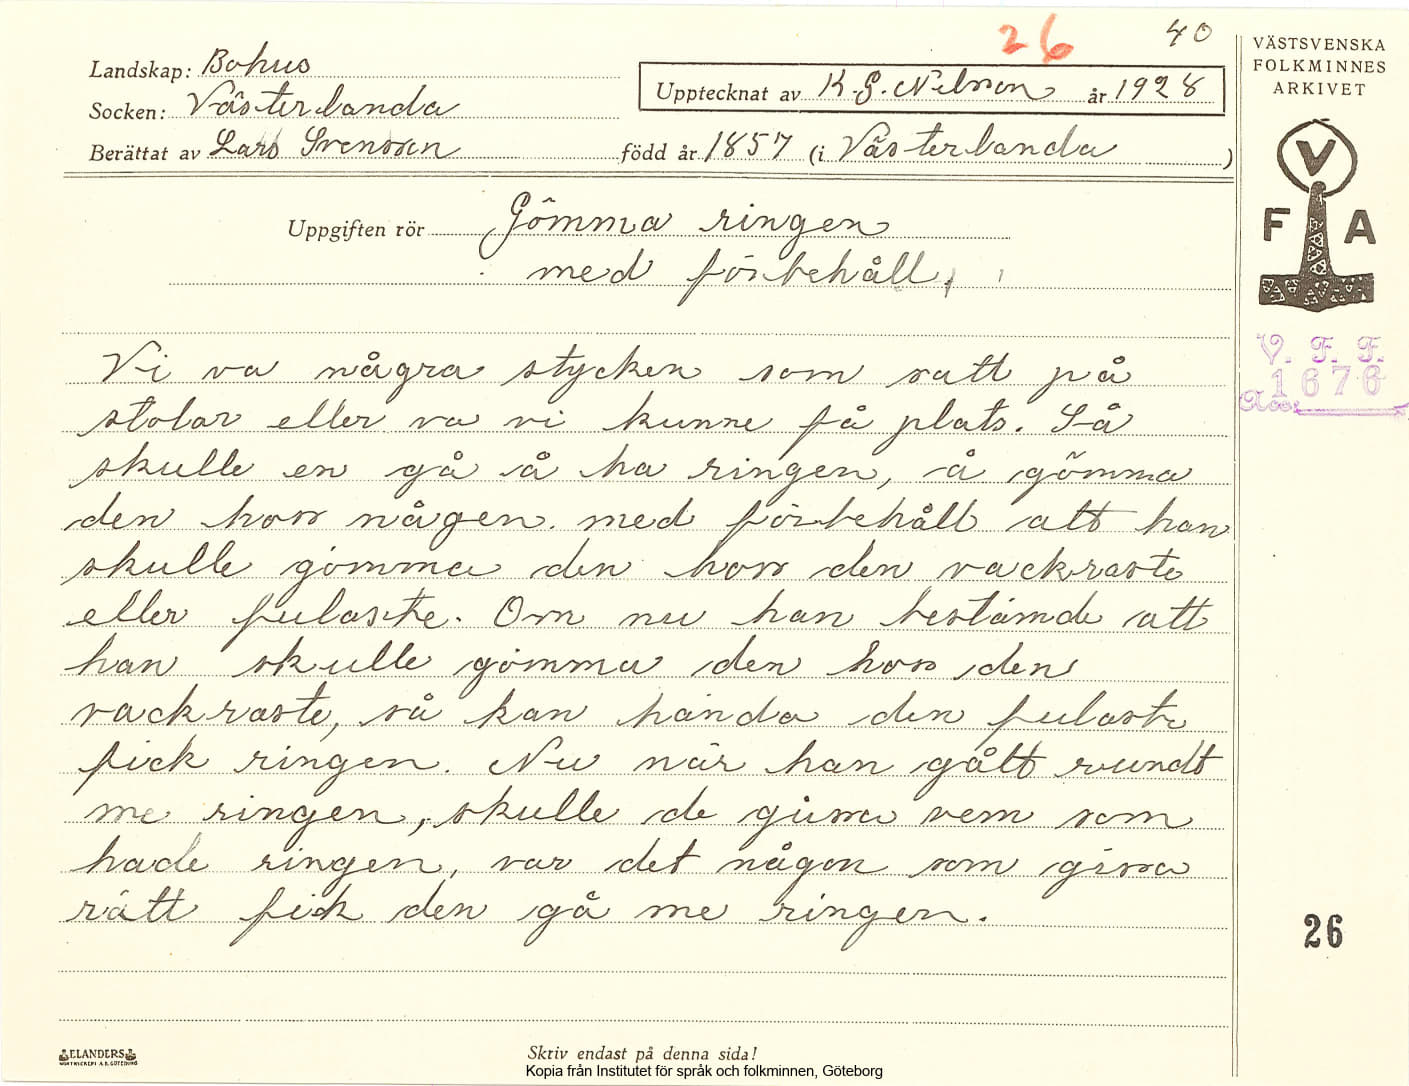 26 40
Landskap: Bohus
Upptecknat av K. G. Nilsson år 1928
Socken: Västerlanda
Berättat av Lars Svensson född år 1857 (i Västerlanda )
VÄSTSVENSKA
FOLKMINNES
ARKIVET
V
F A
Uppgiften rör Gömma ringen
med förbehåll.
V. F. F.
Acc. 1676
Vi va några stycken som satt på
stolar eller va vi kunne få plats. Så
skulle en gå å ha ringen, å gömma
den hoss någen. med förbehåll att han
skulle gömma den hoss den vackraste
eller fulaste. Om nu han bestämde att
han skulle gömma den hoss den
vackraste, så kan hända den fulaste
fick ringen. Nu när han gått rundt
me ringen, skulle de gissa vem som
hade ringen, var det någon som gissa
rätt fick den gå me ringen.
26
ELANDERS
Skriv endast på denna sida!
Kopia från Institutet för språk och folkminnen, Göteborg